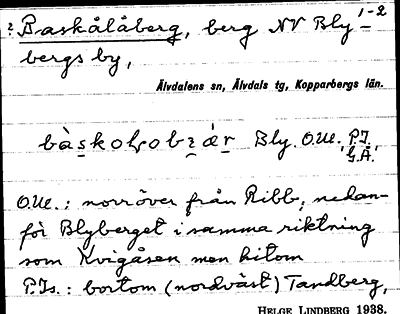 1-2
? Baskålåberg, berg NV Bly-
bergs by,
Älvdalens sn, Älvdals tg, Kopparbergs län.
Bly. O.M., P.J.,
G.Å.
O.M.: norröver från Ribb, nedan-
för Blyberget i samma riktning
som Kvigåsen men hitom
P.Js.: bortom (nordväst) Tandberg,
HELGE LINDBERG 1938.